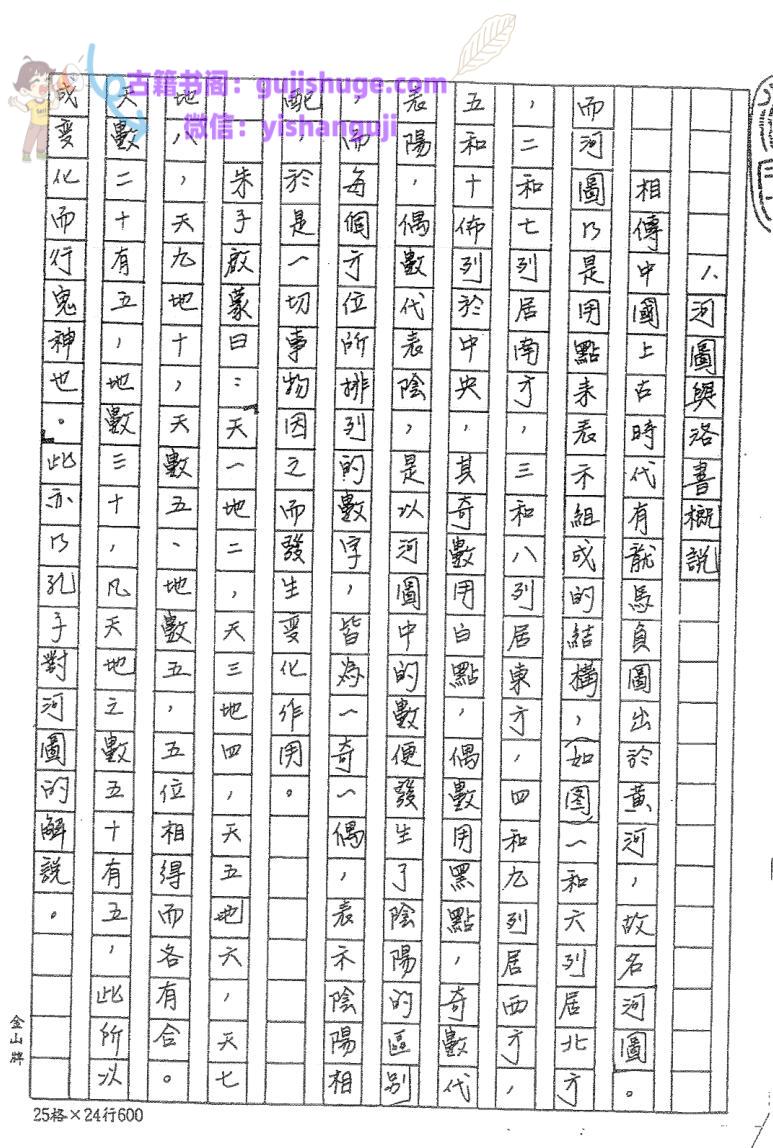 八、河圖與洛書概説
相傳中國上古時代有龍馬負圖出於黃河，故名河圖。
而河圖乃是用點來表示組成的結構，（如图）一和六列居北方
，二和七列居南方，三和八列居東方，四和九列居西方，
五和十佈列於中央，其奇數用白點，偶數用黑點，奇數代
表陽，偶數代表陰，是以河圖中的數便發生了陰陽的區别
，而每個方位所排列的數字，皆為一奇一偶，表示陰陽相
配，於是一切事物因之而發生变化作用。
朱子啟蒙曰：「天一地二，天三地四，天五地六，天七
地八，天九地十，天數五、地數五，五位相得而各有合。
天數二十有五，地數三十，凡天地之數五十有五，此所以
成变化而行鬼神也。」此亦乃孔子對河圖的解說。
金山牌
25格×24行600
古籍书阁：gujishuge.com
微信：yishanguji